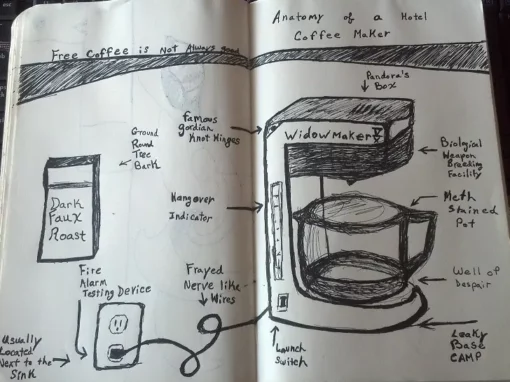 Free Coffee is Not Always good
Anatomy of a Hotel
Coffee Maker
Pandora's
Box
famous
gordian
Knot Hinges
WIDOWMAKER
Ground
Round
Tree
Bark
Biological
Weapon
Breeding
Facility
Dark
Faux
Roast
Hangover
Indicator
Meth
Stained
Pot
Fire
Alarm
Testing Device
Frayed
Nerve like
Wires
Well of
Despair
Usually
Located
Next to the
Sink
Launch
Switch
Leaky
Base
CAMP